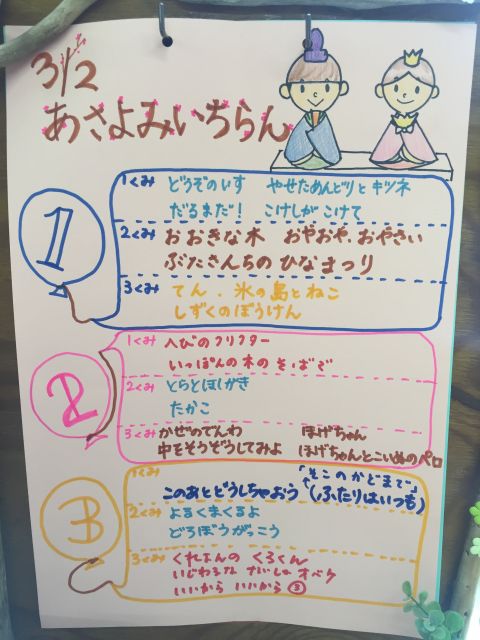 3/2
あさよみいちらん
1
1くみ どうぞのいす やせためんどりとキツネ
だるまだ! こけしがこけて
2くみ おおきな木 おやおや、おやさい
ぶたさんちの ひなまつり
3くみ てん、氷の島とねこ
しずくのぼうけん
2
1くみ へびのクリクター
いっぽんの木のそばで
2くみ とらとほしがき
たかこ
3くみ かぜのでんわ ほげちゃん
中をそうぞうしてみよ ほげちゃんとこいぬのペロ
3
1くみ
「そこのかどまで」
このあとどうしちゃおう (ふたりはいつも)
2くみ よるくまくるよ
どろぼうがっこう
3くみ くれよんの くろくん
いじわるな ないしょ オバケ
いいから いいから ③